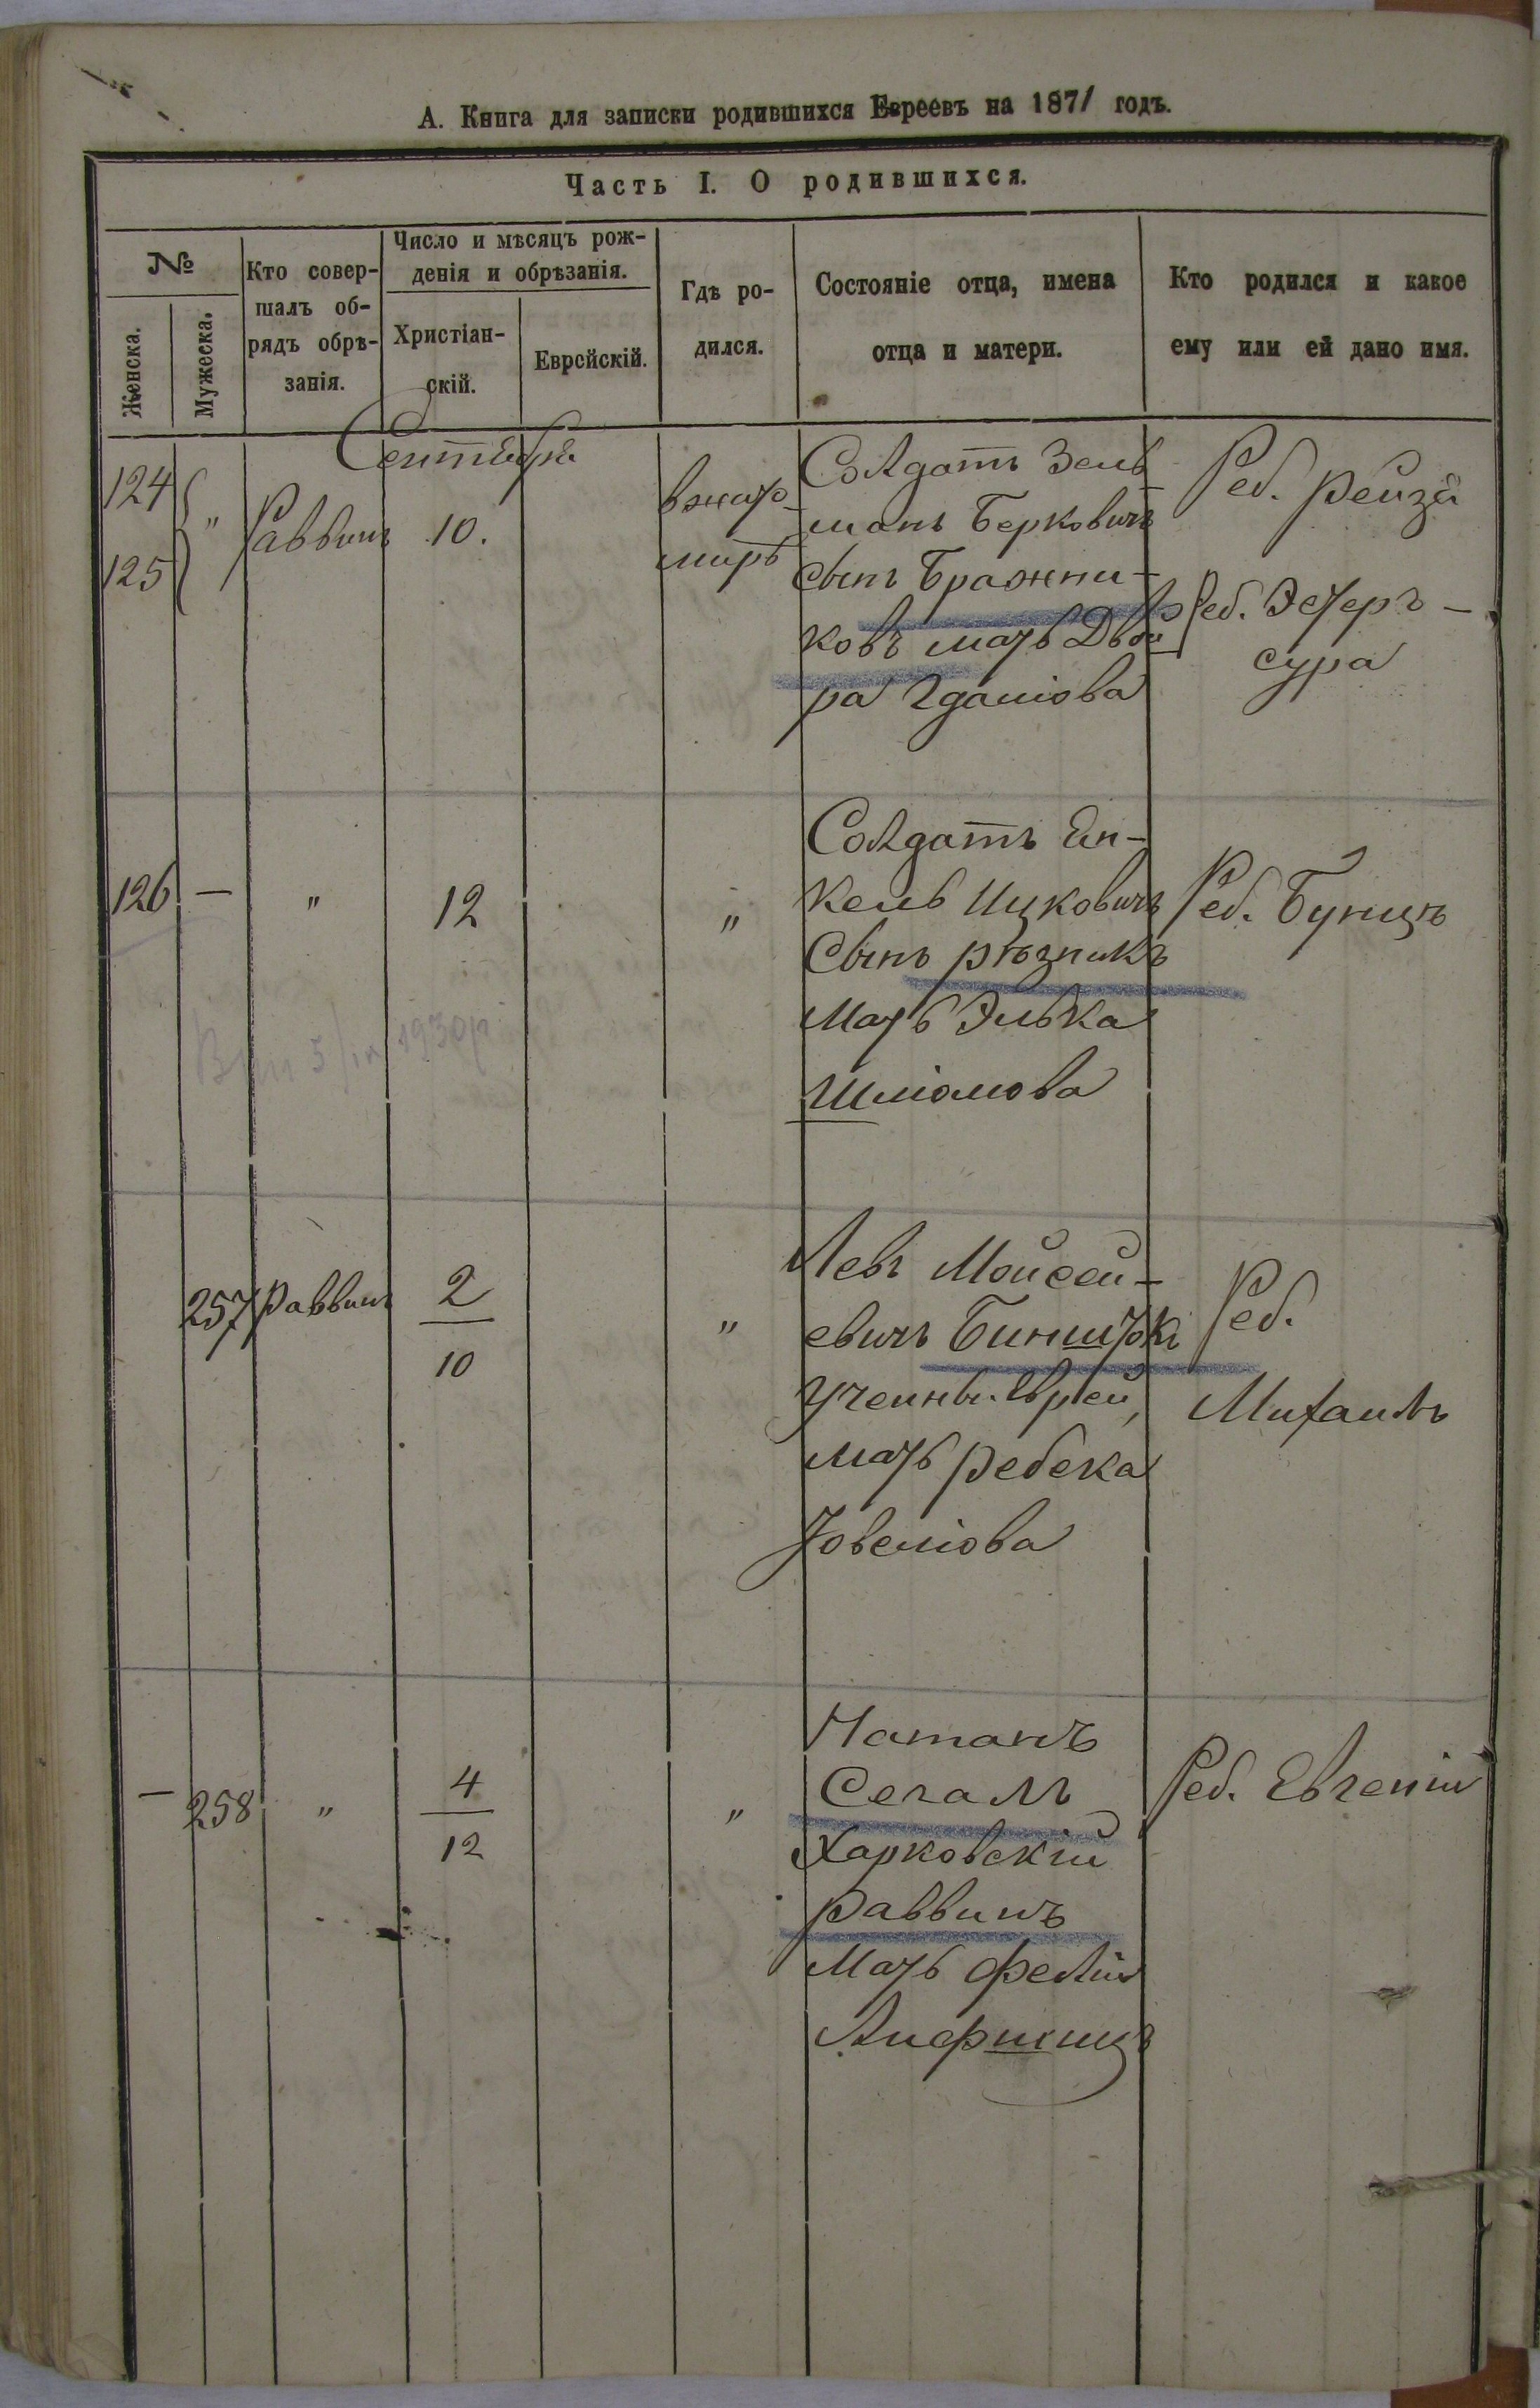 А. Книга для записки родившихся Евреевъ на 1871 годъ.
Часть I. О родившихся.
№
Женска.
Мужеска.
Кто совер-
шалъ об-
рядъ обрѣ-
занія.
Число и мѣсяцъ рож-
денія и обрѣзанія.
Христіан-
скій.
Еврейскій.
Гдѣ ро-
дился.
Состояніе отца, имена
отца и матери.
Кто родился и какое
ему или ей дано имя.
Сентября
124
125
"
Раввинъ
10.
Солдатъ Зель
манъ Берковичъ
сынъ Бражни-
ковъ мать Двой
ра
Реб. Рейза
Реб. Эстеръ-
сура
126 —
"
12
"
Солдатъ Ян-
кель Ицковичъ
сынъ Рѣзникъ
мать Элька
Шліомова
Реб.
257
Раввинъ
2
10
"
Левъ Мойсей-
евичъ Бинштокъ
Учены. Еврей,
мать Ребека
Товеліова
Реб.
Михаилъ
— 258
"
4
12
"
Натанъ
Сегалъ
Харковскій
раввинъ
мать
Лифшицъ
Реб. Евгеній